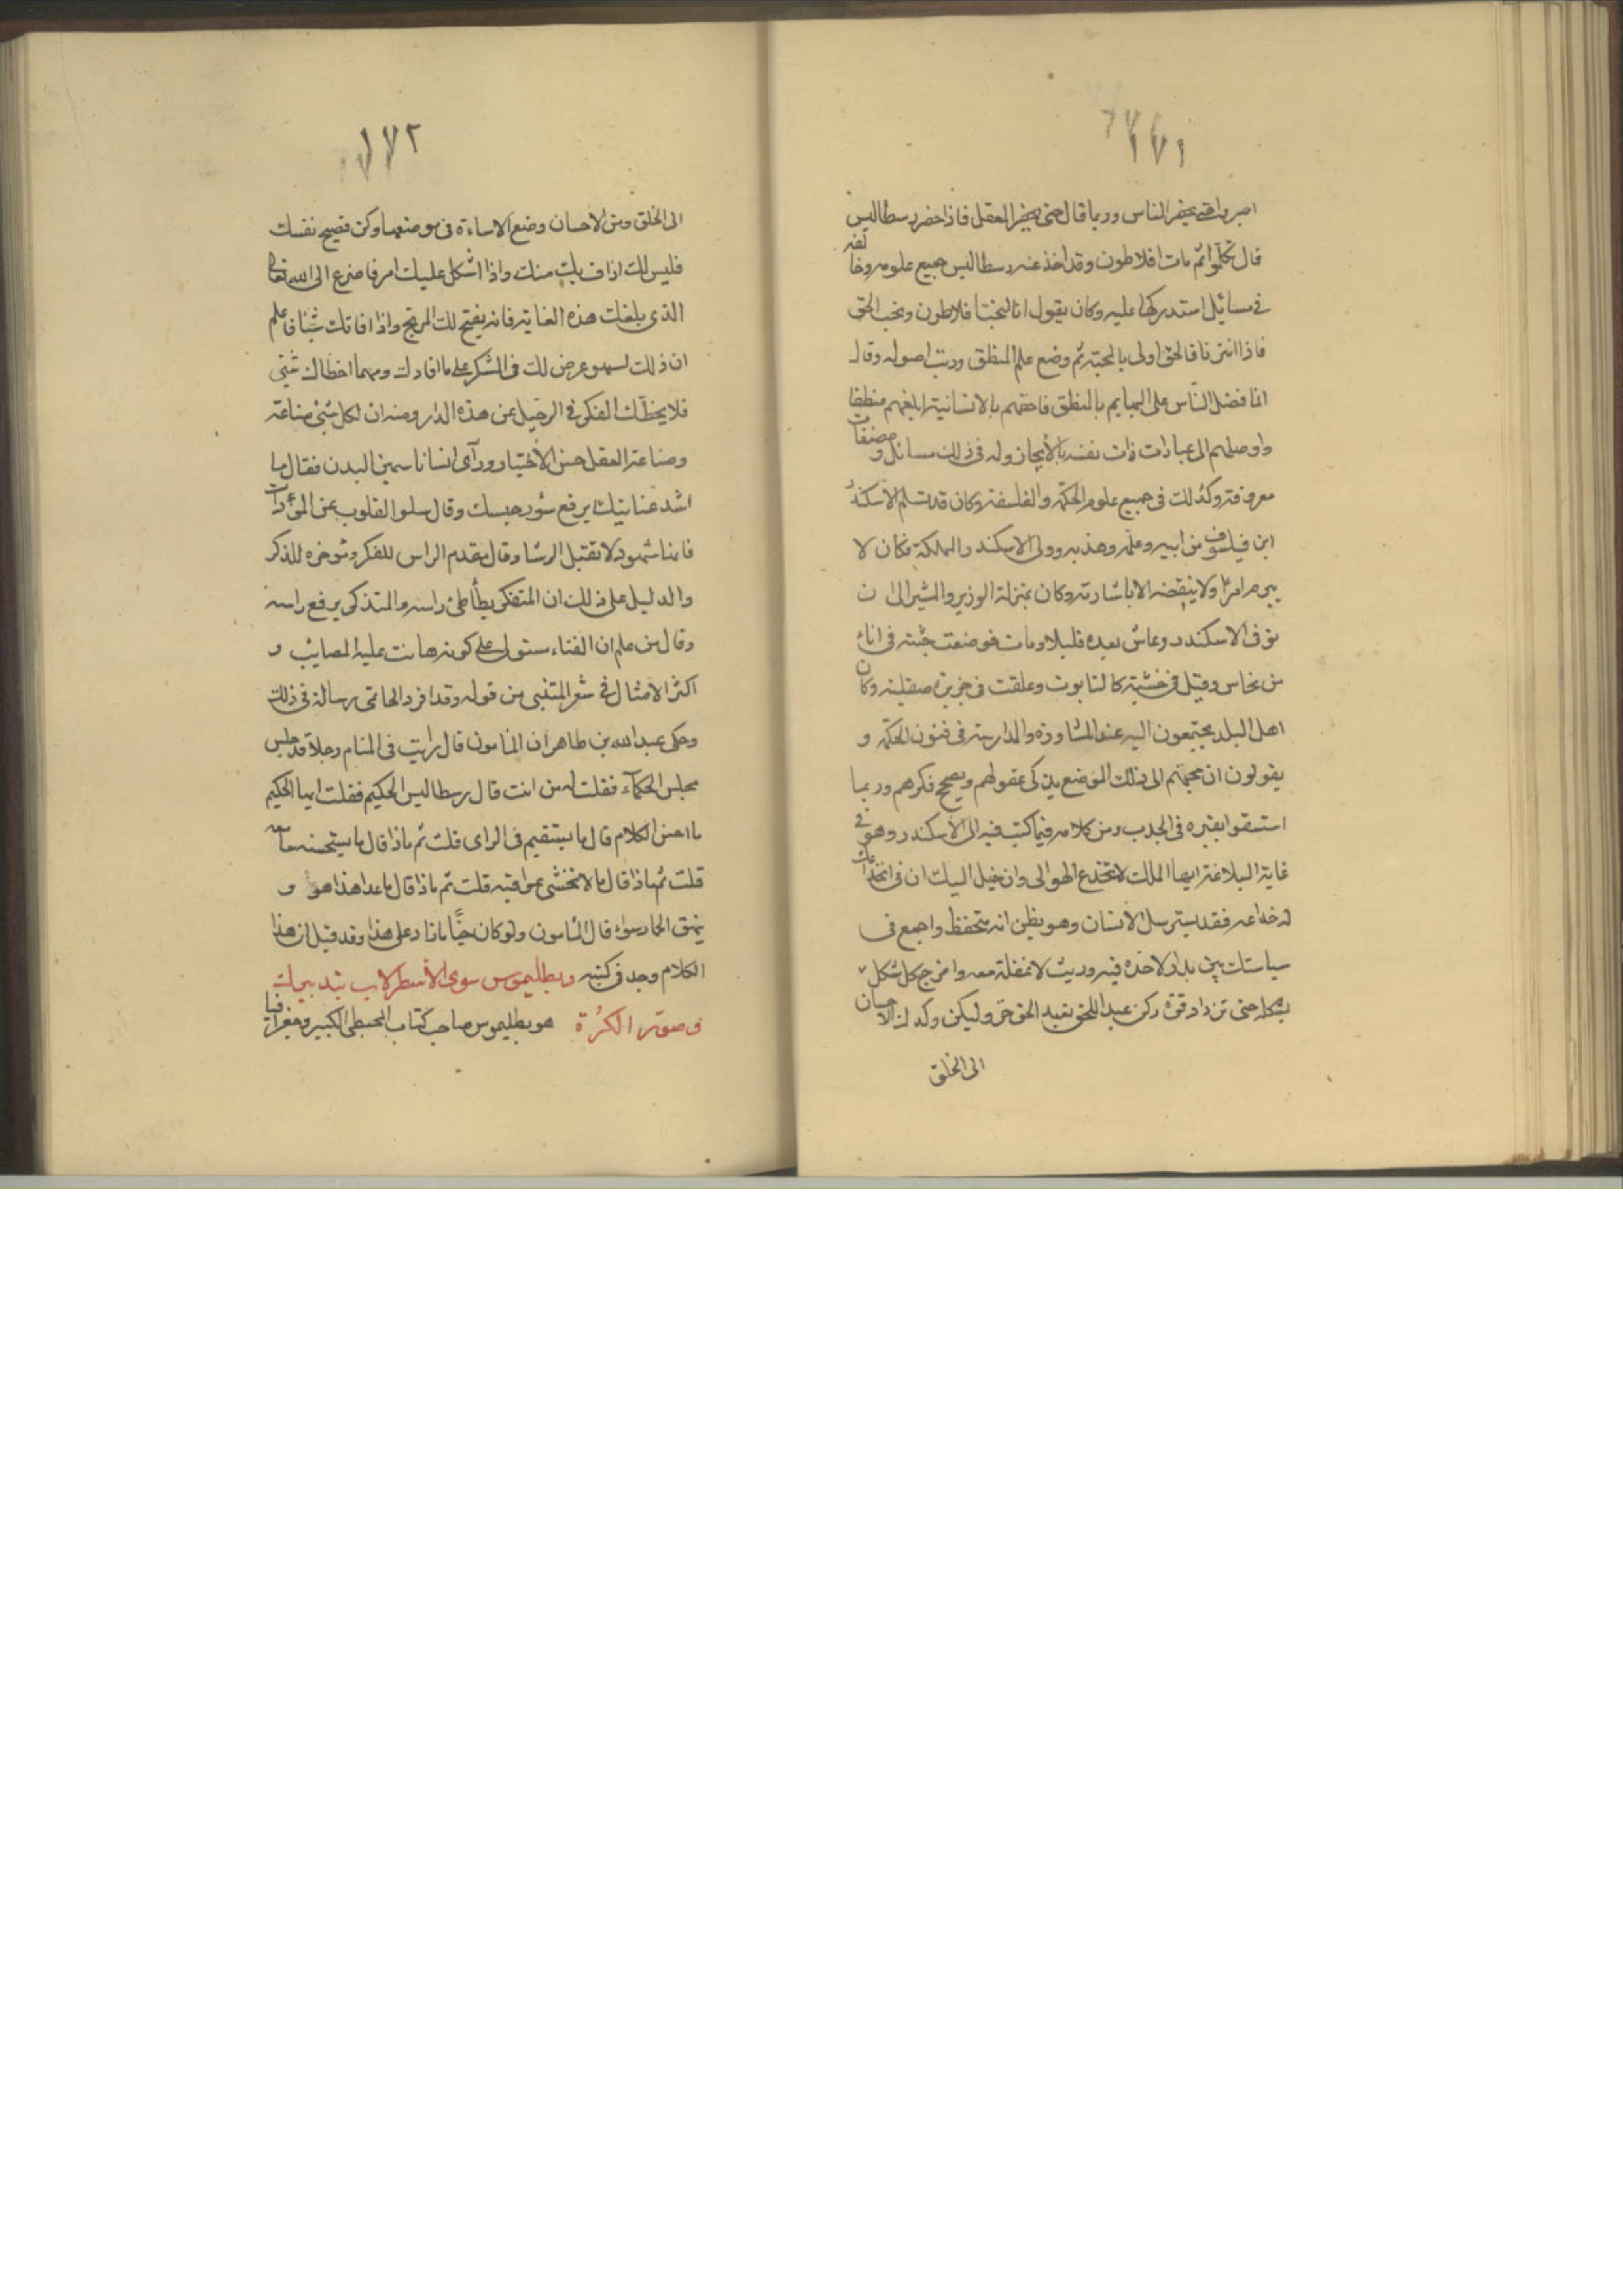 ١٧١
اصبروا حتى يحضر الناس وربما قال حتى يحضر العقل فاذا حضر رسطاليس
قال تكلموا ثم مات افلاطون وقد اخذ عنه رسطاليس جميع علومه وخالفه
في مسائل استدركها عليه وكان يقول انا لنحب افلاطون ونحب الحق
فاذا افترقا فالحق اولى بالمحبة ثم وضع علم المنطق ورتب اصوله وقال
انما فضل الناس على البهايم بالمنطق فاحقهم بالانسانية ابلغهم منطقا
واوصلهم الى عبارات ذات نفسه بالأيجاز وله في ذلك مسائل ومصنفات
معروفة وكذلك في جميع علوم الحكمة والفلسفة وكان قد تسلم الاسكندر
ابن فيلسوف من ابيه وعلمه وهذبه وولى الاسكندر المملكة فكان لا
يبرم امرًا ولا ينقضه الا باشارته وكان بمنزلة الوزير والمشير الى ان
توفى الاسكندر وعاش بعده قليلا ومات فوضعت جثته في اناء
من نحاس وقيل في خشبة كالتابوت وعلقت في جزيرة صقلية وكان
اهل البلد يجتمعون اليه عند المشاورة والمدارسة في فنون الحكمة و
يقولون ان مجيئهم الى ذلك الموضع يذكى عقولهم ويصحح فكرهم وربما
استسقوا بقبره في الجدب ومن كلامه فيما كتب فيه الى الأسكندر وهو في
غاية البلاغة ايها الملك لا تنخدع للهوا وان خيل اليك ان في انخداعك
له خداعه فقد يسترسل الأنسان وهو يظن انه متحفظ واجمع في
سياستك بين بدار لا حدة فيه وريث لا غفلة معه وامزج كل شكل
بشكله حتى تزداد قوة وكن عبدا للحق فعبد الحق حر وليكن وكدك الاحسان
الى الخلق
١٧٢
الى الخلق ومن الاحسان وضع الاساءة في موضعها وكن نصيح نفسك
فليس لك اراف بك منك واذا اشكل عليك امر فاضرع الى الله تعالى
الذى بلغك هذه الغاية فانه يفتح لك المرتج واذا فاتك شيئا فاعلم
ان ذلك لسهو عرض لك في الشكر على ما افادك ومهما اخطاك شيئ
فلا يخطئك الفكر في الرحيل عن هذه الدار ومنه ان لكل شيئ صناعة
وصناعة العقل حسن الأختيار ورآى انسانا سمين البدن فقال ما
اشد عنايتك برفع سور حبسك وقال سلوا القلوب عن المودات
فانها شهود لا تقبل الرشا وقال مقدم الراس للفكر ومؤخره للذكر
والدليل على ذلك ان المتفكر يطأطئ راسه والمتذكر يرفع راسه
وقال من علم ان الفناء مستول على كونه هانت عليه المصايب و
اكثر الامثال في شعر المتنبى من قوله وقد افرد الحاتمى رسالة في ذلك
وحكى عبد الله بن طاهر ان المامون قال رايت في المنام رجلا قد جلس
مجلس الحكماء فقلت له من انت قال رسطاليس الحكيم فقلت ايها الحكيم
ما احسن الكلام قال ما يستقيم في الراى قلت ثم ماذا قال ما يستحسنه سامعه
قلت ثم ماذا قال ما لا تخشى عواقبه قلت ثم ماذا قال ما عدا هذا هو و
نهيق الحمار سواء قال المامون ولو كان حيًّا ما زاد على هذا وقد قيل ان هذا
الكلام وجد في كتبه وبطليموس سوى الأسطرلاب بتدبيرك
وصور الكُرة هو بطليموس صاحب كتاب المجسطى الكبير وجغرافيا